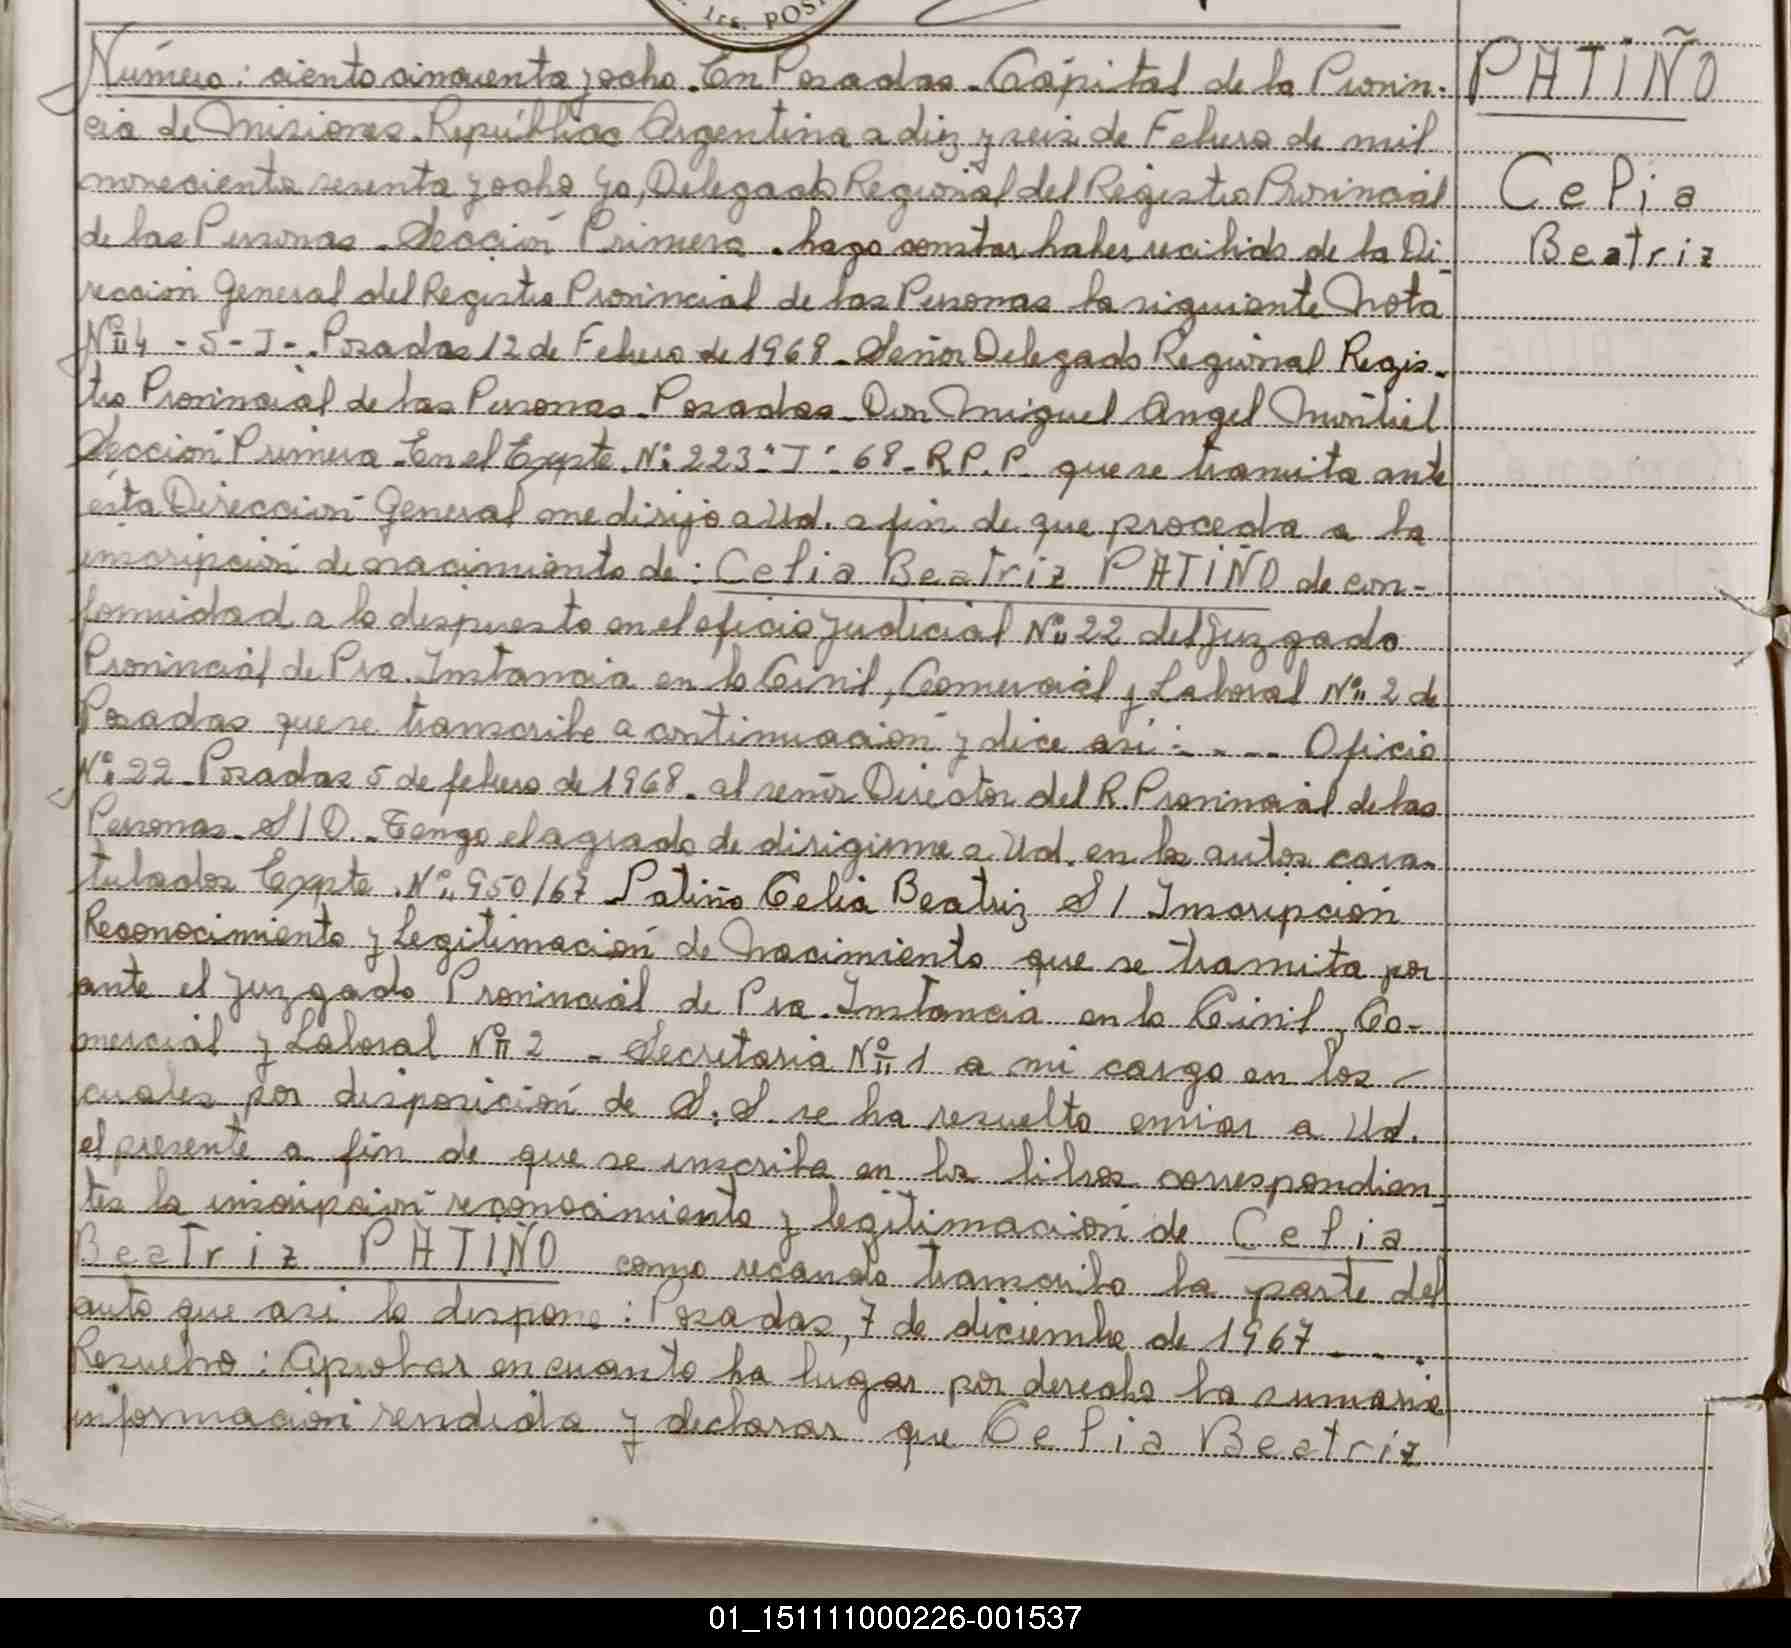 1ra. POS
Número: ciento cincuenta y ocho. En Posadas. Capital de la Provin-
cia de Misiones. República Argentina a diez y seis de Febrero de mil
novecientos sesenta y ocho yo, Delegado Regional del Registro Provincial
de las Personas. Sección Primera. hago constar haber recibido de la Di-
rección General del Registro Provincial de las Personas la siguiente Nota
Nº 4 - S - J -. Posadas 12 de Febrero de 1968. Señor Delegado Regional Regis-
tro Provincial de las Personas. Posadas. Don Miguel Angel Montiel
Sección Primera. En el Expte. Nº 223 "J" 68. R.P.P. que se tramita ante
ésta Dirección General me dirijo a Ud. a fin de que proceda a la
inscripción de nacimiento de: Celia Beatriz PATIÑO de con-
formidad a lo dispuesto en el oficio judicial Nº 22 del juzgado
Provincial de Pra. Instancia en lo Civil, Comercial y Laboral Nº 2 de
Posadas que se transcribe a continuación y dice así: - - - - Oficio
Nº 22. Posadas 5 de febrero de 1968. al señor Director del R. Provincial de las
Personas. S/D. Tengo el agrado de dirigirme a Ud. en los autos cara-
tulados Expte. Nº 950/67 Patiño Celia Beatriz S/ Inscripción
Reconocimiento y Legitimación de Nacimiento que se tramita por
ante el juzgado Provincial de Pra. Instancia en lo Civil, Co-
mercial y Laboral Nº 2 - Secretaria Nº 1 a mi cargo en los -
cuales por disposición de S.S. se ha resuelto enviar a Ud.
el presente a fin de que se inscriba en los libros correspondien-
tes la inscripción reconocimiento y legitimación de Celia
Beatriz PATIÑO como recaudo transcribo la parte del
auto que asi lo dispone: Posadas, 7 de diciembre de 1967 - - .
Resuelvo: Aprobar en cuanto ha lugar por derecho la sumaria
información rendida y declarar que Celia Beatriz
PATIÑO
Celia
Beatriz
01_151111000226-001537